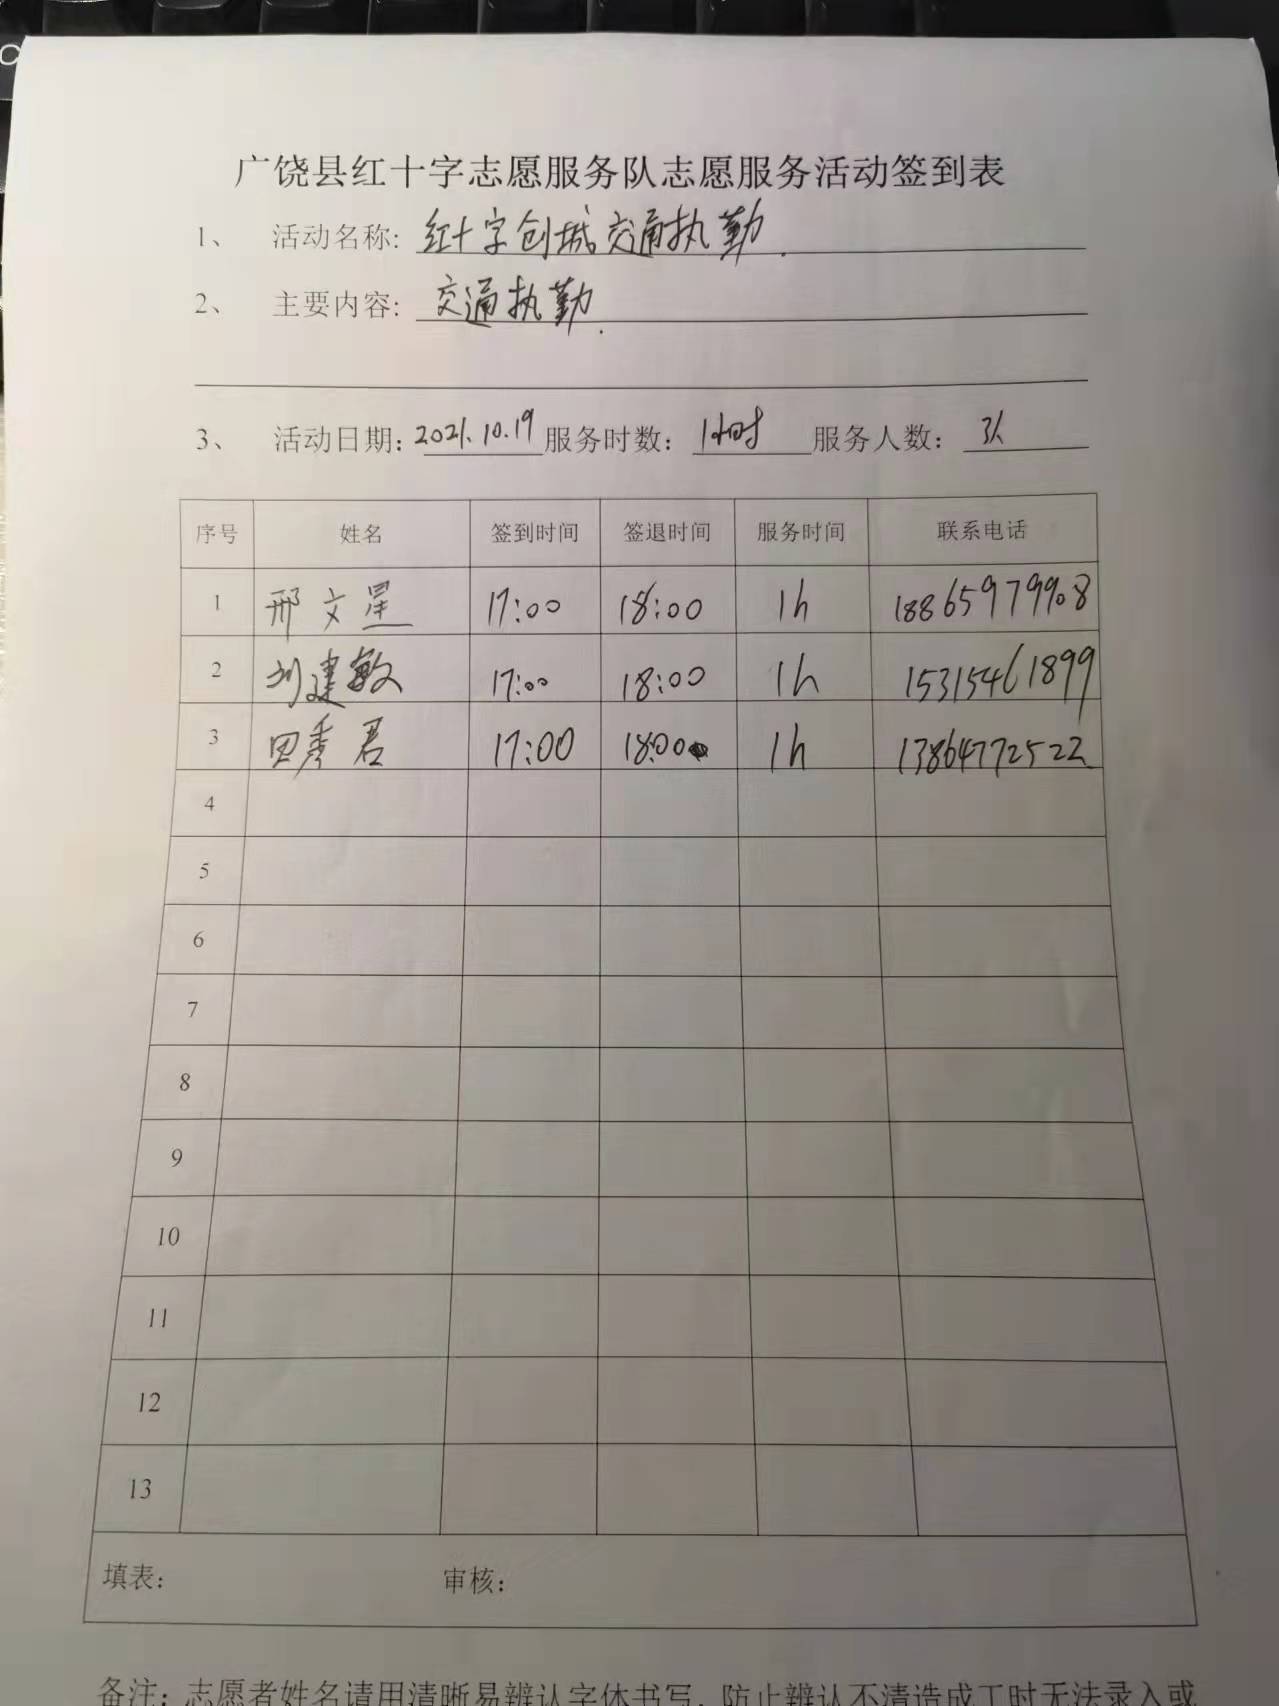 广饶县红十字志愿服务队志愿服务活动签到表
1、 活动名称: 红十字创城交通执勤.
2、 主要内容: 交通执勤.
3、 活动日期: 2021.10.19 服务时数: 1小时 服务人数: 3人
序号 姓名 签到时间 签退时间 服务时间 联系电话
1 邢文星 17:00 18:00 1h 18865979908
2 刘建敏 17:00 18:00 1h 15315461899
3 田秀君 17:00 18:00 1h 13864772522
4
5
6
7
8
9
10
11
12
13
填表: 审核:
备注: 志愿者姓名请用清晰易辨认字体书写, 防止辨认不清造成工时无法录入或